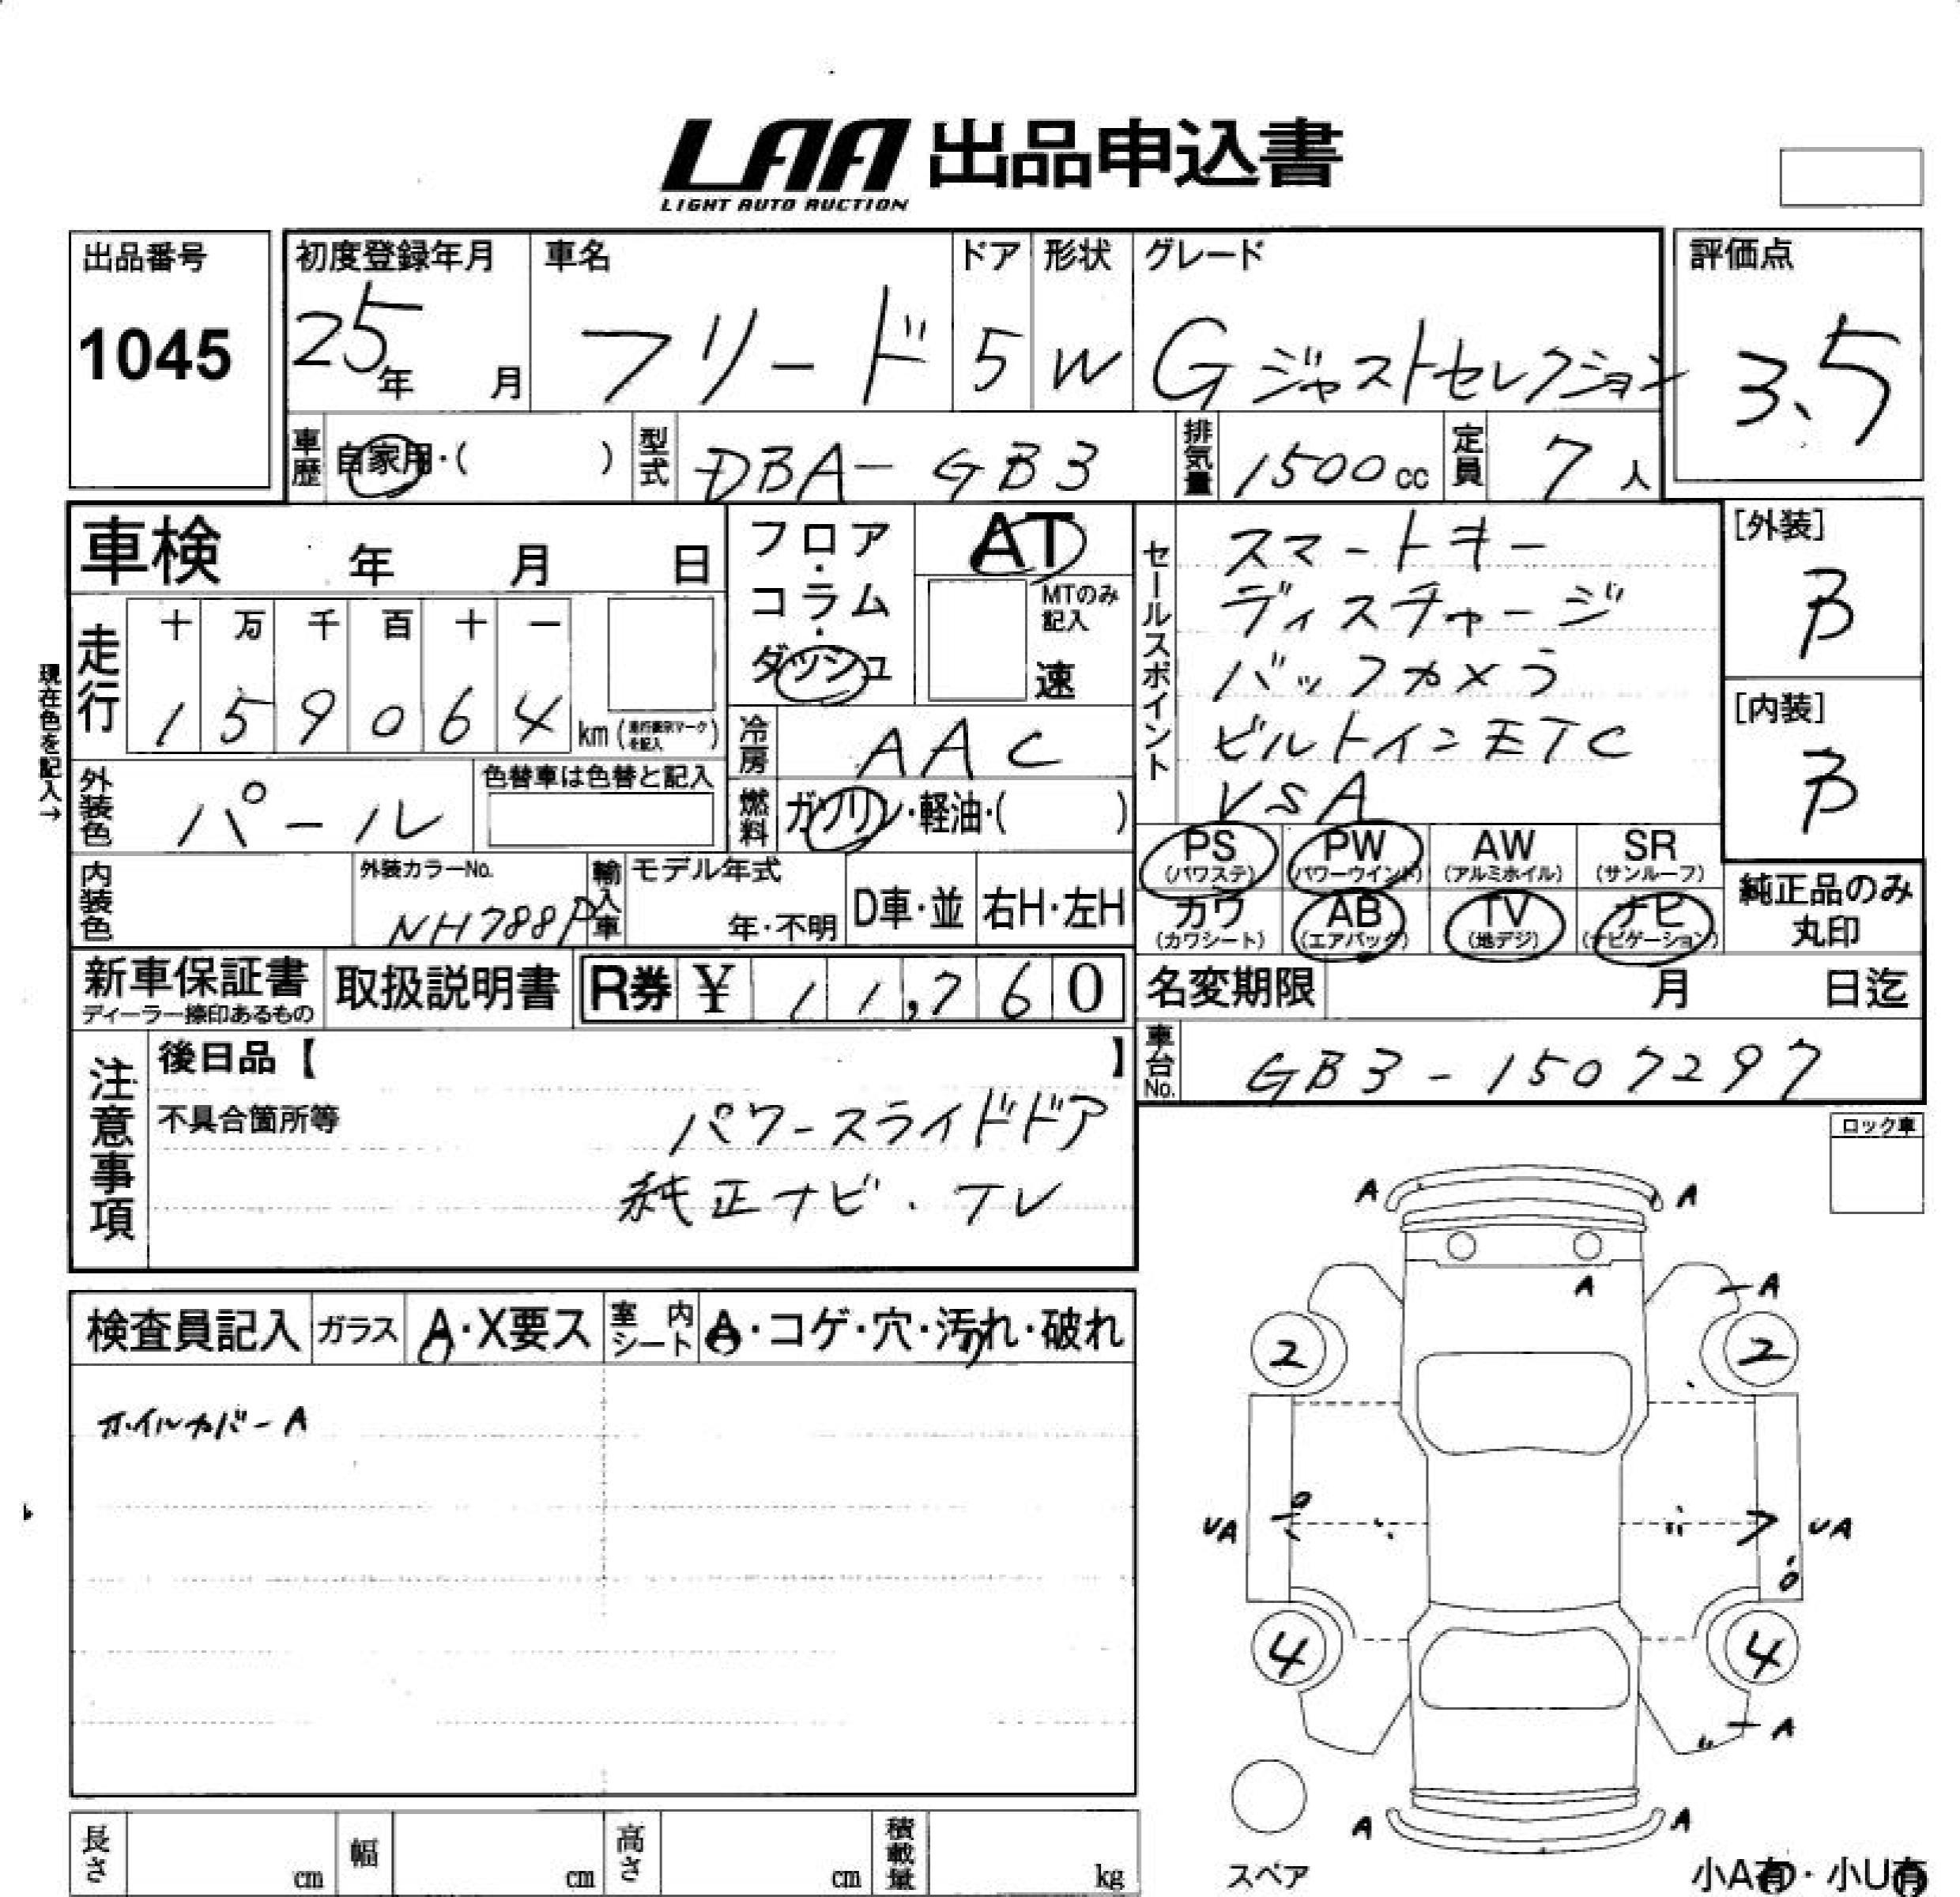 LAA 出品申込書
LIGHT AUTO AUCTION
出品番号
1045
初度登録年月
25年 月
車名
フリード
ドア
5
形状
W
グレード
G ジャストセレクション
評価点
3.5
車歴 自家用・( )
型式 DBA-GB3
排気量 1500cc
定員 7人
車検 年 月 日
フロア・コラム・ダッシュ
AT
MTのみ記入
速
セールスポイント
スマートキー
ディスチャージ
バックカメラ
ビルトインETC
VSA
[外装]
B
[内装]
B
現在色を記入→
走行
十 万 千 百 十 一
1 5 9 0 6 4 km
冷房 AAC
燃料 ガソリン・軽油・( )
外装色 パール
色替車は色替と記入
内装色
外装カラーNo.
NH788P
輸入車
モデル年式
年・不明
D車・並
右H・左H
PS (パワステ)
PW (パワーウインド)
AW (アルミホイル)
SR (サンルーフ)
カワ (カワシート)
AB (エアバック)
TV (地デジ)
ナビ (ナビゲーション)
純正品のみ
丸印
新車保証書
ディーラー捺印あるもの
取扱説明書
R券 ¥ 11,760
名変期限 月 日迄
車台No. GB3-1507297
注意事項
後日品【 】
不具合箇所等
パワースライドドア
純正ナビ・TV
ロック車
検査員記入
ガラス A・X要ス
室内シート A・コゲ・穴・汚れ・破れ
ホイルカバーA
A A
A
A
2 2
UA UA
4 4
A
A A
スペア
小A有・小U有
長さ cm
幅 cm
高さ cm
積載量 kg